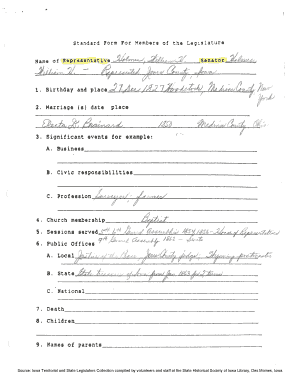 Standard Form For Members of the Legislature
Name of Representative Holmes, William V. Senator Holmes
William V. - Represented Jones County, Iowa
1. Birthday and place 27 Dec 1827 Woodstock, Madison County New
York
2. Marriage (s) date place
1853 Medina County
3. Significant events for example:
A. Business
B. Civic responsibilities
C. Profession Surveyor; farmer
4. Church membership Baptist
5. Sessions served 5th, 6th General Assemblies 1854, 1856 - House of Representatives
9th General Assembly 1862 - Senate
6. Public Offices
A. Local Justice of the Peace, Jones County judge,
B. State
C. National
7. Death
8. Children
9. Names of parents
Source: Iowa Territorial and State Legislators Collection compiled by volunteers and staff at the State Historical Society of Iowa Library, Des Moines, Iowa